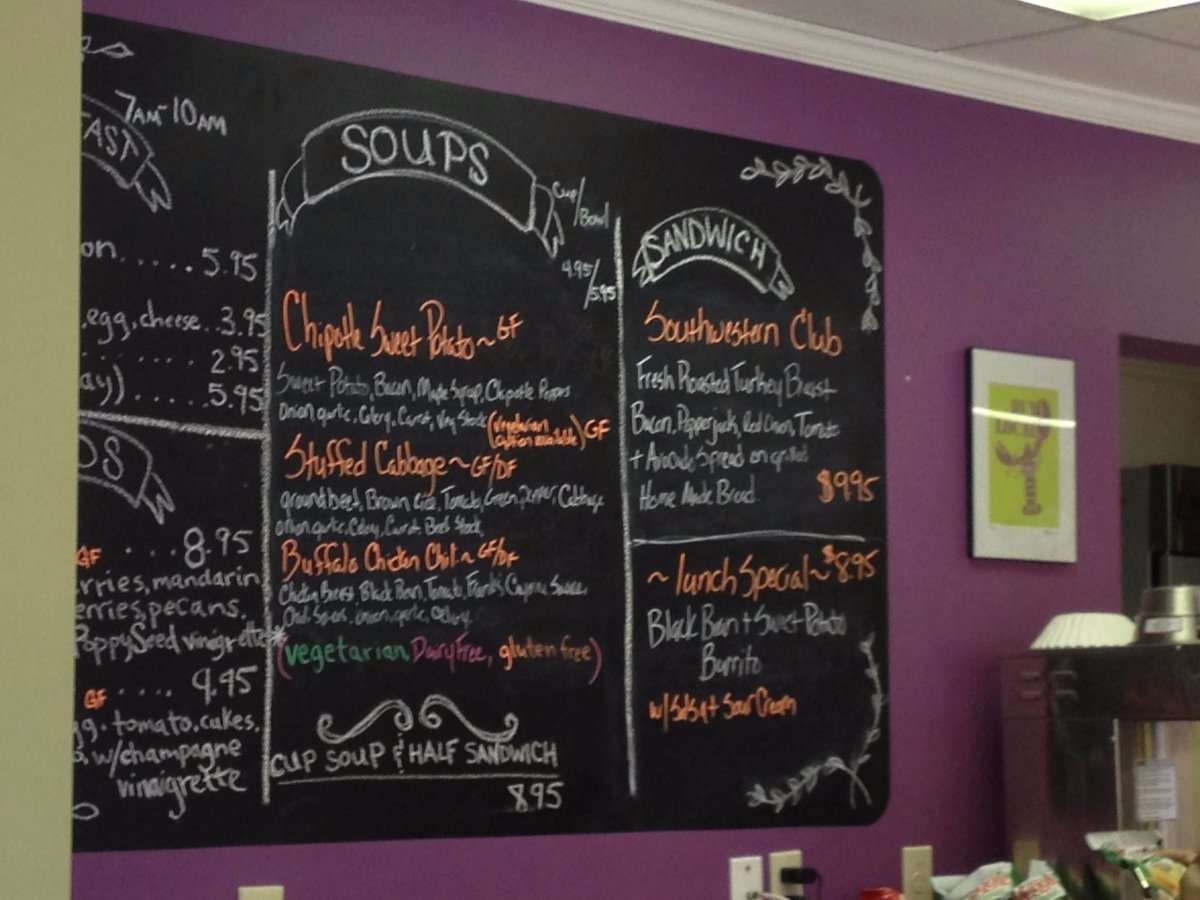 7AM-10AM
AST
on......5.95
egg, cheese..3.95
........2.95
ay)).....5.95
DS
GF ....8.95
rries, mandarin
erries, pecans,
PoppySeed vinigrette*
GF ..... 9.95
gg. tomato. cukes.
w/champagne
vinaigrette
SOUPS
Cup/
Bowl
4.95/
5.95
Chipotle Sweet Potato~GF
Sweet Potato, Bacon, Maple Syrup, Chipotle Peppers
Onion, garlic, Celery, Carrot, Veg Stock (vegetarian
option available) GF
Stuffed Cabbage~GF/DF
ground beef, Brown rice, Tomato, Green Pepper, Cabbage
onion, garlic, Celery, Carrot Beef Stock
Buffalo Chicken Chili~GF/DF
Chicken Breast, Black Bean, Tomato, Franks Cayenne Sauce
onion, garlic, Celery
(vegetarian, Dairy Free, gluten free)
CUP SOUP & HALF SANDWICH
8.95
SANDWICH
Southwestern Club
Fresh Roasted Turkey Breast
Bacon, Pepperjack, Red Onion, Tomato
+ Avocado Spread on grilled
Home Made Bread. $9.95
~lunch Special~$8.95
Black Bean + Sweet Potato
Burrito
w/ Salsa + Sour Cream